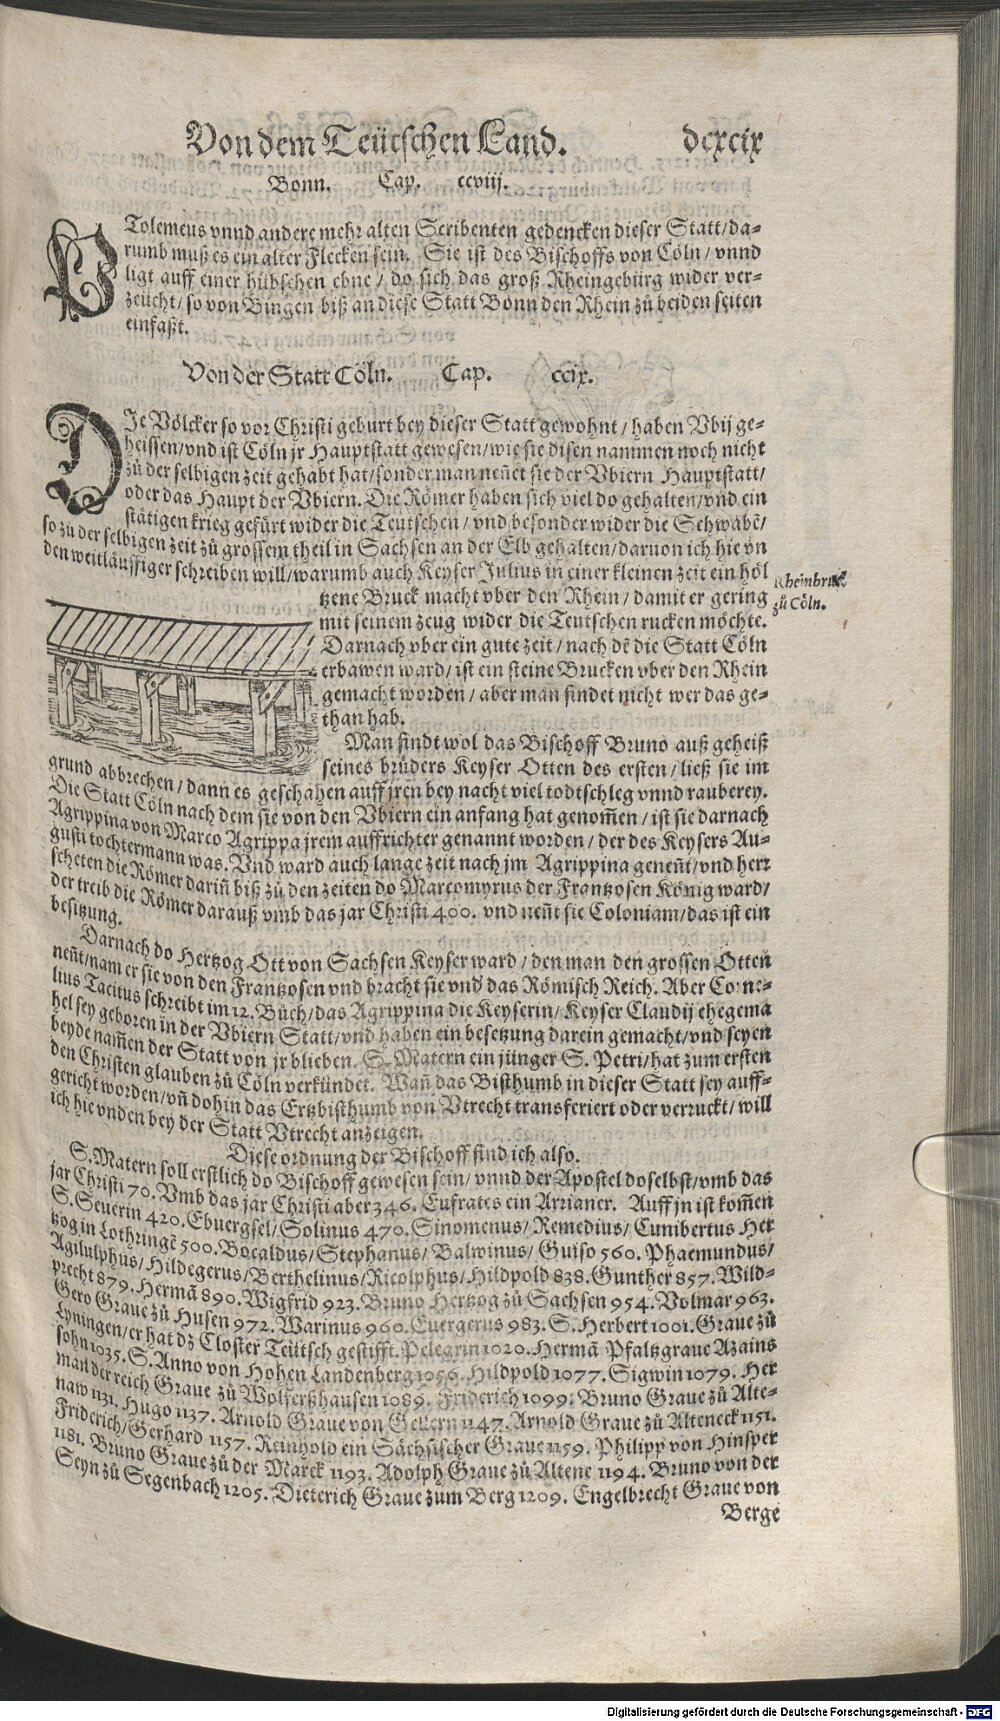 Von dem Teütschen Land. dcxcix
Bonn. Cap. ccviij.
PTolemeus vnnd andere mehr alten Scribenten gedencken dieser Statt/da-
rumb muß es ein alter Flecken sein. Sie ist des Bischoffs von Cöln/ vnnd
ligt auff einer hübschen ebne/ do sich das groß Rheingebürg wider ver-
zeücht/ so von Bingen biß an diese Statt Bonn den Rhein zů beiden seiten
einfaßt.
Von der Statt Cöln. Cap. ccix.
DJe Völcker so vor Christi geburt bey dieser Statt gewohnt/ haben Vbij ge-
heissen/vnd ist Cöln jr Hauptstatt gewesen/wie sie disen nammen noch nicht
zů der selbigen zeit gehabt hat/sonder man neñet sie der Vbiern Hauptstatt/
oder das Haupt der Vbiern. Die Römer haben sich viel do gehalten/vnd ein
stätigen krieg gefürt wider die Teutschen/ vnd besonder wider die Schwabẽ/
so zu der selbigen zeit zů grossem theil in Sachsen an der Elb gehalten/daruon ich hie vn
den weitläuffiger schreiben will/warumb auch Keyser Julius in einer kleinen zeit ein höl
tzene Bruck macht vber den Rhein/ damit er gering
Rheinbruck
zů Cöln.
mit seinem zeug wider die Teutschen rucken möchte.
Darnach vber ein gute zeit/ nach dẽ die Statt Cöln
erbawen ward/ ist ein steine Brucken vber den Rhein
gemacht worden/ aber man findet nicht wer das ge-
than hab.
Man findt wol das Bischoff Bruno auß geheiß
seines brůders Keyser Otten des ersten/ ließ sie im
grund abbrechen/ dann es geschahen auff jren bey nacht viel todtschleg vnnd rauberey.
Die Statt Cöln nach dem sie von den Vbiern ein anfang hat genom̃en/ ist sie darnach
Agrippina von Marco Agrippa jrem auffrichter genannt worden/ der des Keysers Au-
gusti tochtermann was. Vnd ward auch lange zeit nach jm Agrippina geneñt/vnd herr
scheten die Römer dariñ biß zů den zeiten do Marcomyrus der Frantzosen König ward/
der treib die Römer darauß vmb das jar Christi 400. vnd neñt sie Coloniam/das ist ein
besitzung.
Darnach do Hertzog Ott von Sachsen Keyser ward/ den man den grossen Otten
neñt/nam er sie von den Frantzosen vnd bracht sie vnd das Römisch Reich. Aber Corne-
lius Tacitus schreibt im 12. Bůch/das Agrippina die Keyserin/ Keyser Claudij ehegema
hel sey geboren in der Vbiern Statt/vnd haben ein besetzung darein gemacht/vnd seyen
beyde nam̃en der Statt von jr blieben. S. Matern ein jünger S. Petri/ hat zum ersten
den Christen glauben zů Cöln verkündet. Wañ das Bisthumb in dieser Statt sey auff-
gericht worden/vñ dohin das Ertzbisthumb von Vtrecht transferiert oder verruckt/ will
ich hie vnden bey der Statt Vtrecht anzeigen.
Diese ordnung der Bischoff find ich also.
S. Matern soll erstlich do Bischoff gewesen sein/ vnnd der Apostel doselbst/vmb das
jar Christi 70. Vmb das jar Christi aber 346. Eufrates ein Arrianer. Auff jn ist kom̃en
S. Seuerin 420. Ebuergsel/ Solinus 470. Sinomenus/ Remedius/ Cunibertus Her
tzog in Lothringẽ 500. Bocaldus/ Stephanus/ Balwinus/ Guiso 560. Phaemundus/
Agilulphus/ Hildegerus/ Berthelinus/ Ricolphus/ Hildpold 838. Gunther 857. Wild-
precht 879. Hermã 890. Wigfrid 923. Bruno Hertzog zů Sachsen 954. Volmar 963.
Gero Graue zů Husen 972. Warinus 960. Euergerus 983. S. Herbert 1001. Graue zů
Lyningen/ er hat dz Closter Teütsch gestifft. Pelegrin 1020. Hermã Pfaltzgraue Azains
sohn 1035. S. Anno von Hohen Landenberg 1056. Hildpold 1077. Sigwin 1079. Her
man der reich Graue zů Wolferßhausen 1089. Friderich 1099. Bruno Graue zů Alte-
naw 1131. Hugo 1137. Arnold Graue von Gellern 1147. Arnold Graue zů Alteneck 1151.
Friderich/ Gerhard 1157. Reinhold ein Sächsischer Graue 1159. Philipp von Hinsper
1181. Bruno Graue zů der Marck 1193. Adolph Graue zů Altene 1194. Bruno von der
Seyn zů Segenbach 1205. Dieterich Graue zum Berg 1209. Engelbrecht Graue von
Berge
Digitalisierung gefördert durch die Deutsche Forschungsgemeinschaft - DFG